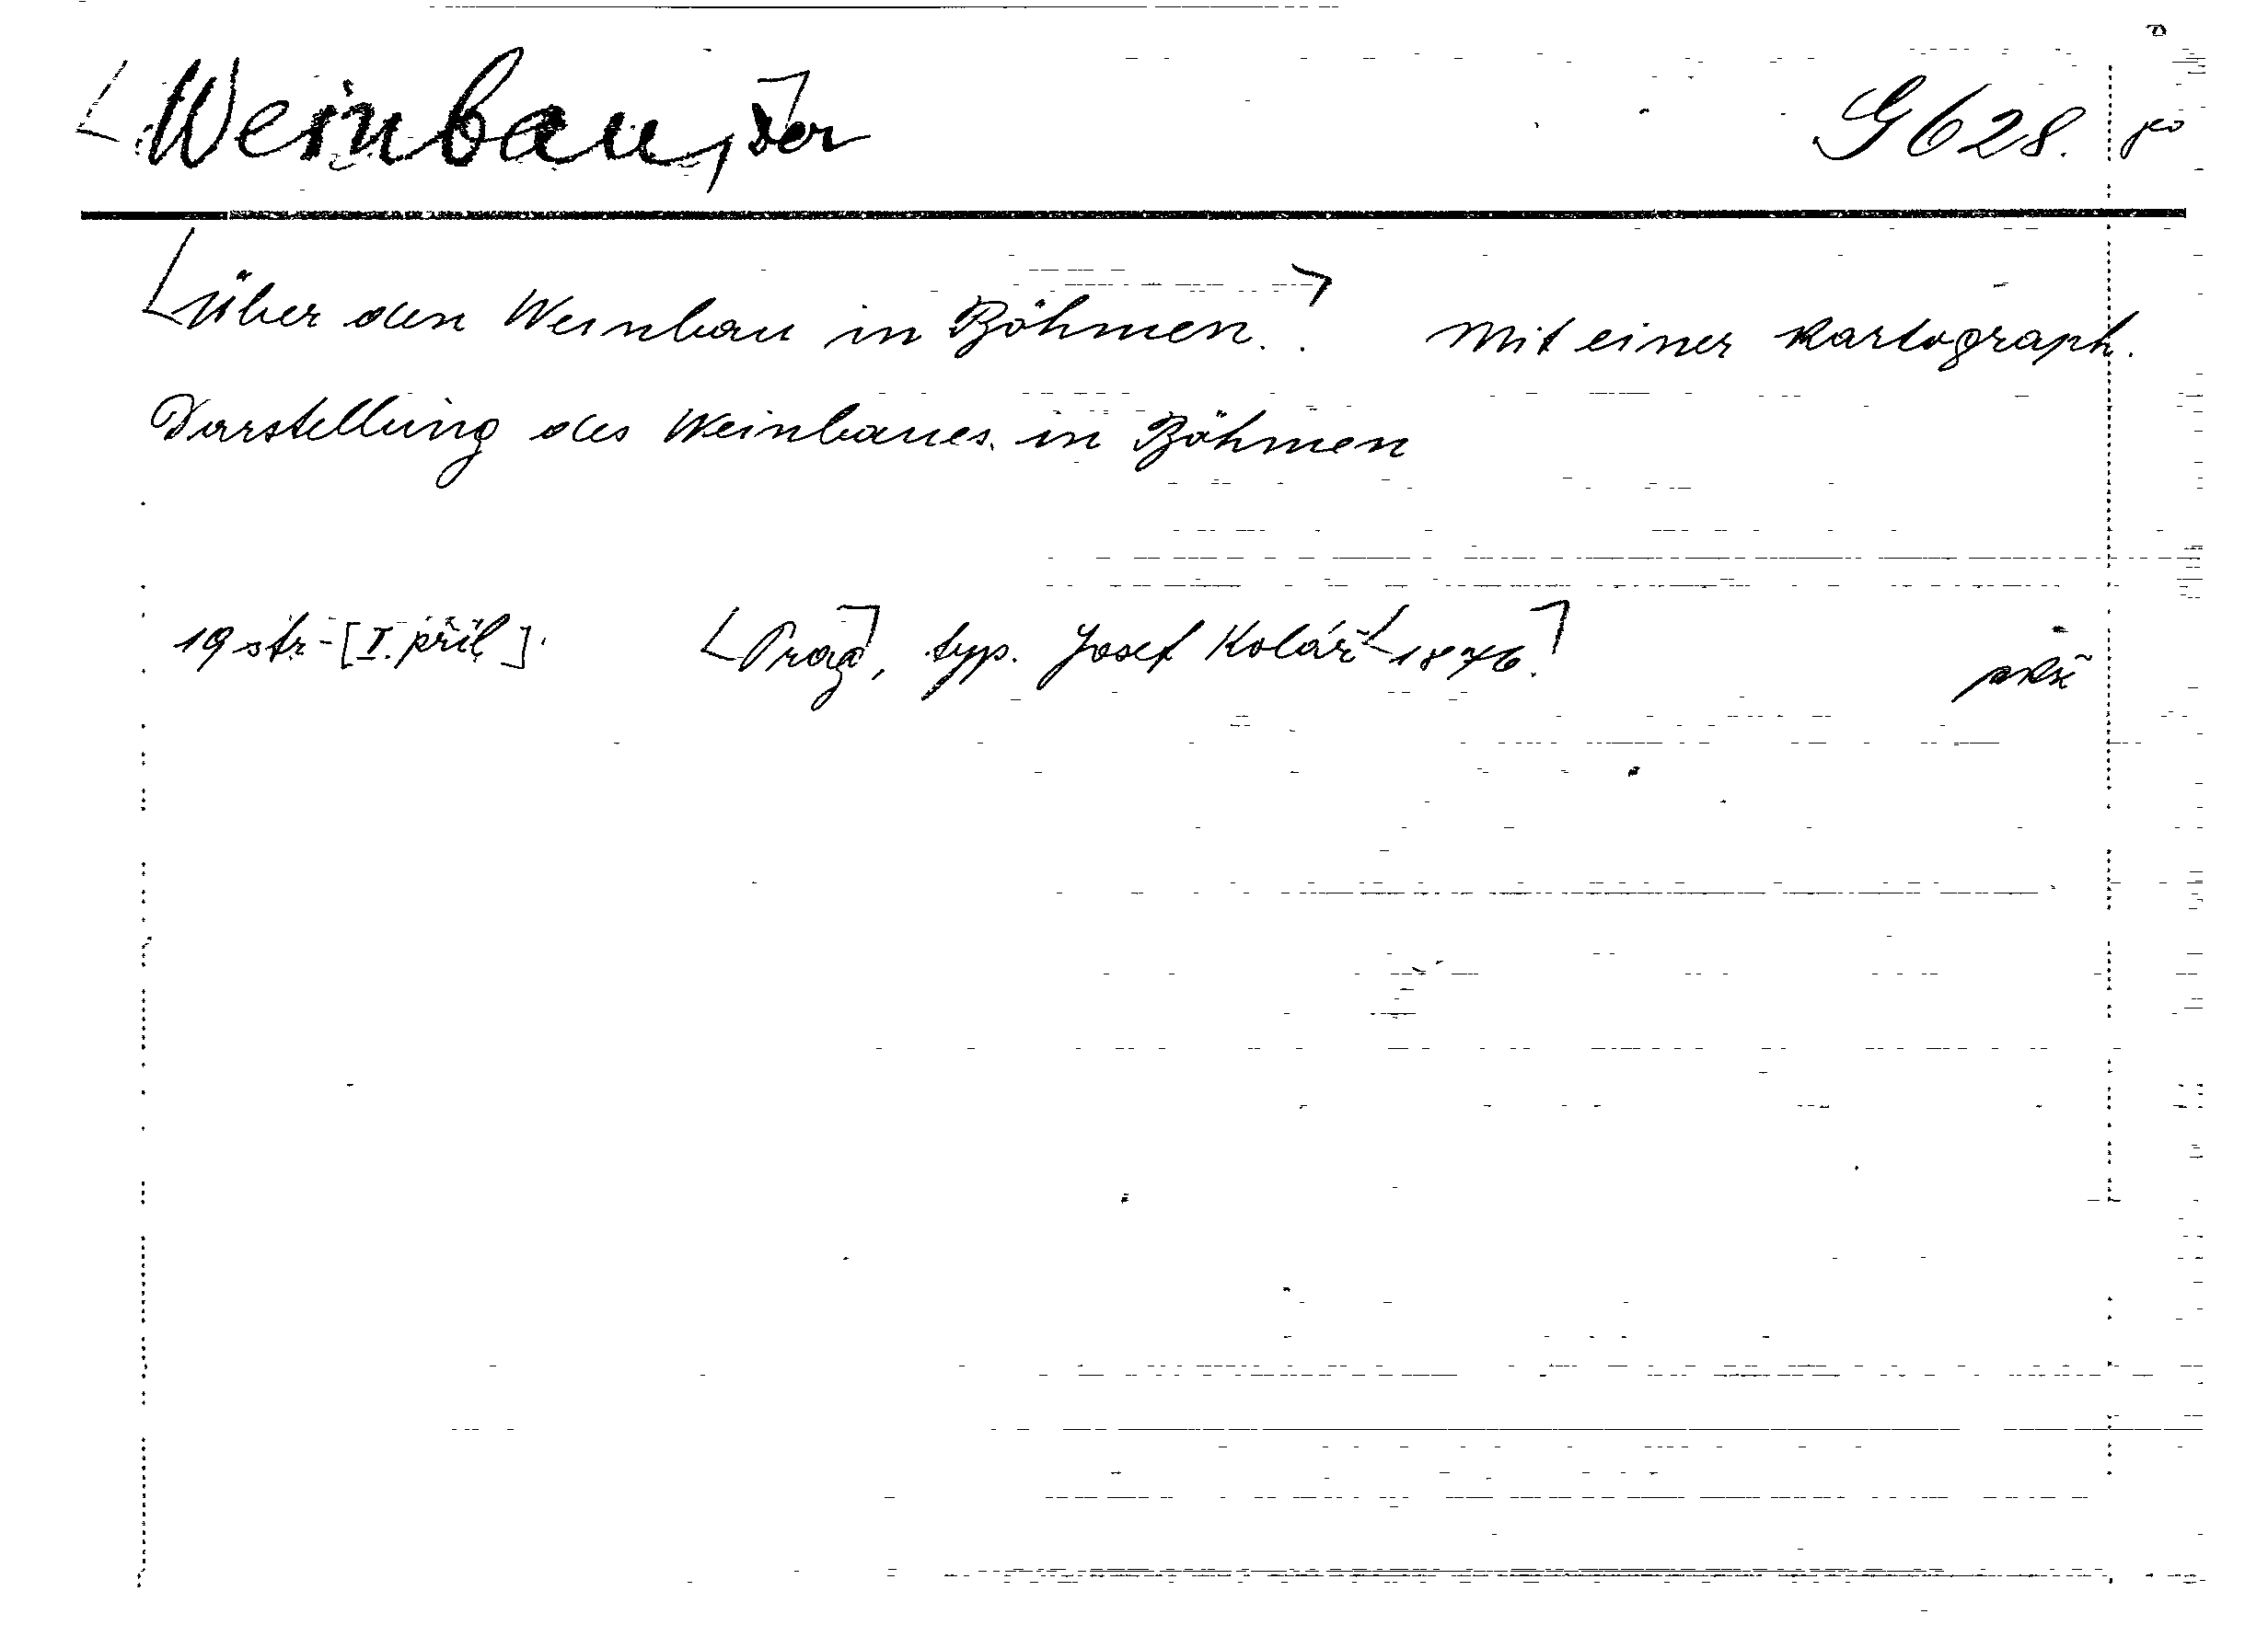 Weinbau, der G 628.
Über den Weinbau in Böhmen.. Mit einer kartograph.
Darstellung des Weinbaues in Böhmen
19 str - [I. příl]. Prag, typ. Josef Kolář 1876.